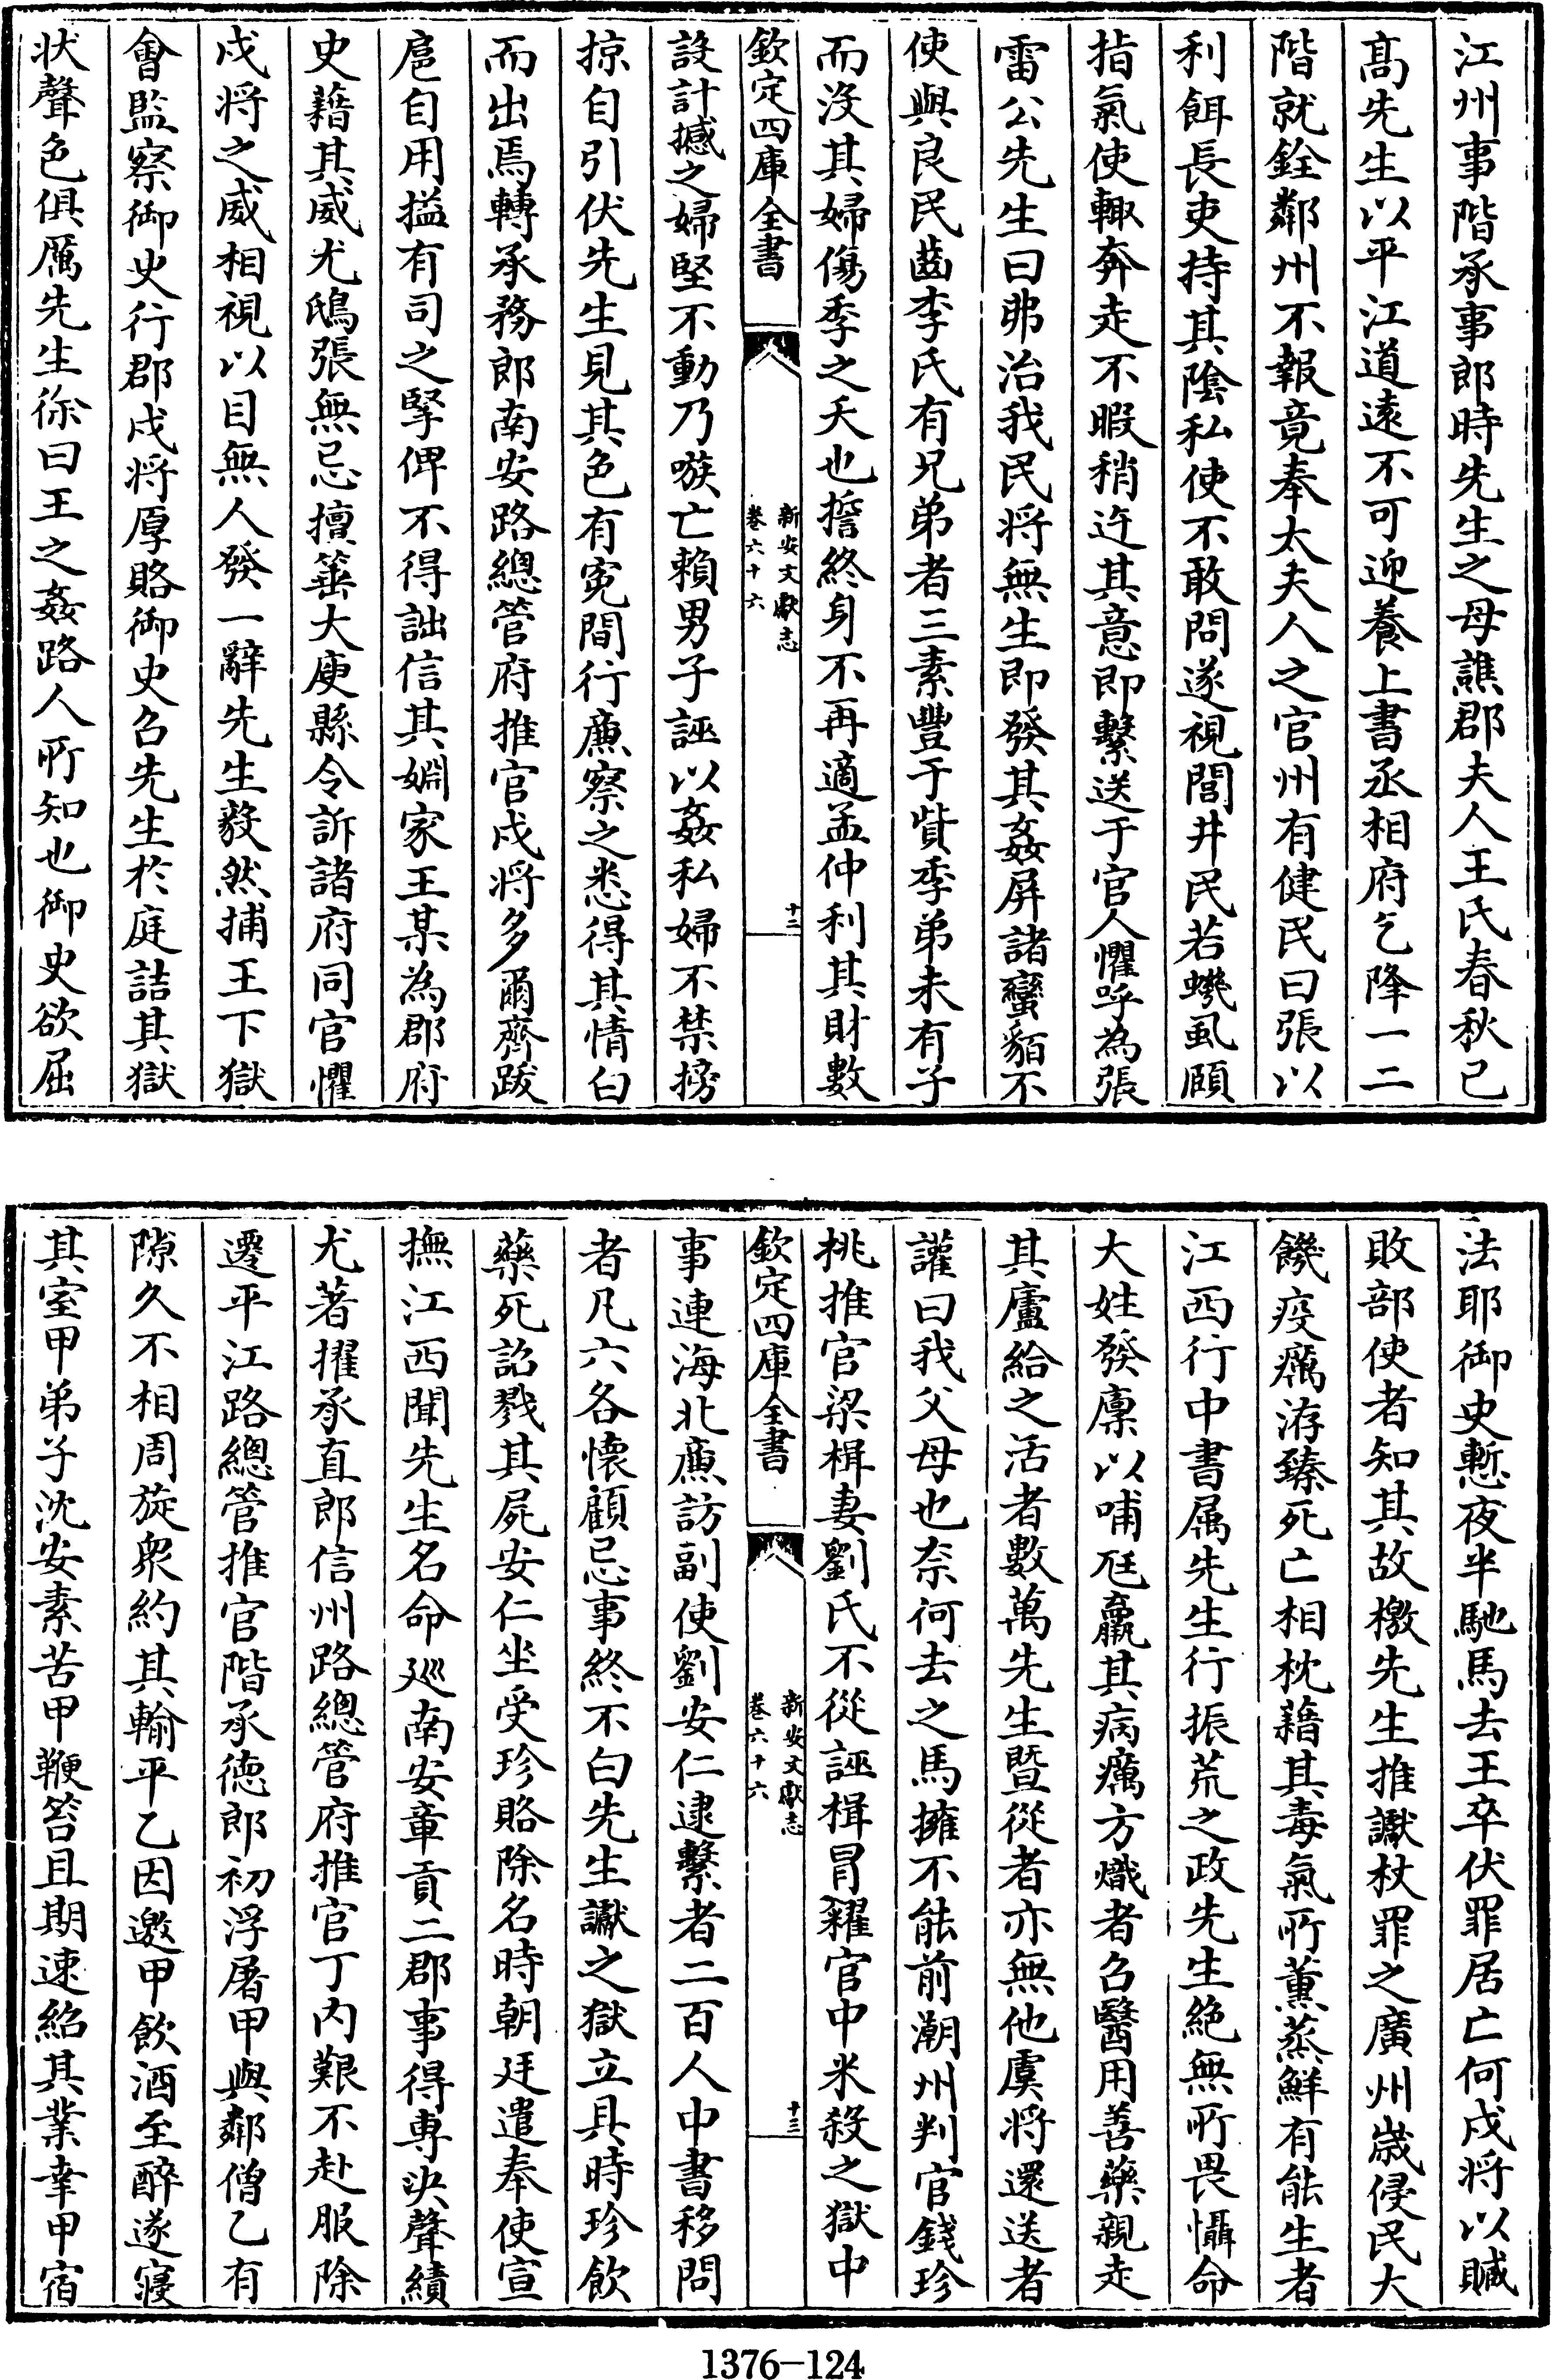 江州事階承事郎時先生之母譙郡夫人王氏春秋已
髙先生以平江道逺不可迎養上書丞相府乞降一二
階就銓鄰州不報竟奉太夫人之官州有健民曰張以
利餌長吏持其隂私使不敢問遂視閭井民若蟣虱頤
指氣使輙奔走不暇稍迕其意即繫送于官人懼呼為張
雷公先生曰弗治我民將無生即發其姦屏諸蠻貊不
使與良民齒李氏有兄弟者三素豐于貲季弟未有子
而沒其婦傷季之夭也誓終身不再適孟仲利其財數
欽定四庫全書
新安文獻志
卷六十六
十二
設計撼之婦堅不動乃嗾亡賴男子誣以姦私婦不禁搒
掠自引伏先生見其色有寃間行廉察之悉得其情白
而出焉轉承務郎南安路總管府推官戍將多爾齊跋
扈自用搤有司之掔俾不得詘信其婣家王某為郡府
史藉其威尤鴟張無忌擅箠大庾縣令訴諸府同官懼
戍將之威相視以目無人發一辭先生毅然捕王下獄
㑹監察御史行郡戍將厚賂御史召先生於庭詰其獄
狀聲色俱厲先生徐曰王之姦路人所知也御史欲屈
法耶御史慙夜半馳馬去王卒伏罪居亡何戍將以贓
敗部使者知其故檄先生推讞杖罪之廣州歳侵民大
饑疫癘洊臻死亡相枕藉其毒氣所薰蒸鮮有能生者
江西行中書属先生行振荒之政先生絶無所畏懾命
大姓發廪以哺尫羸其病癘方熾者召醫用善藥親走
其廬給之活者數萬先生暨從者亦無他虞將還送者
讙曰我父母也奈何去之馬擁不能前潮州判官錢珍
挑推官梁楫妻劉氏不從誣楫冐糴官中米殺之獄中
欽定四庫全書
新安文獻志
卷六十六
十三
事連海北廉訪副使劉安仁逮繫者二百人中書移問
者凡六各懐顧忌事終不白先生讞之獄立具時珍飲
藥死詔戮其屍安仁坐受珍賂除名時朝廷遣奉使宣
撫江西聞先生名命廵南安章貢二郡事得專决聲績
尤著擢承直郎信州路總管府推官丁内艱不赴服除
遷平江路總管推官階承徳郎初浮屠甲與鄰僧乙有
隙久不相周旋衆約其輸平乙因邀甲飲酒至醉遂寢
其室甲弟子沈安素苦甲鞭笞且期速紹其業幸甲宿
1376-124